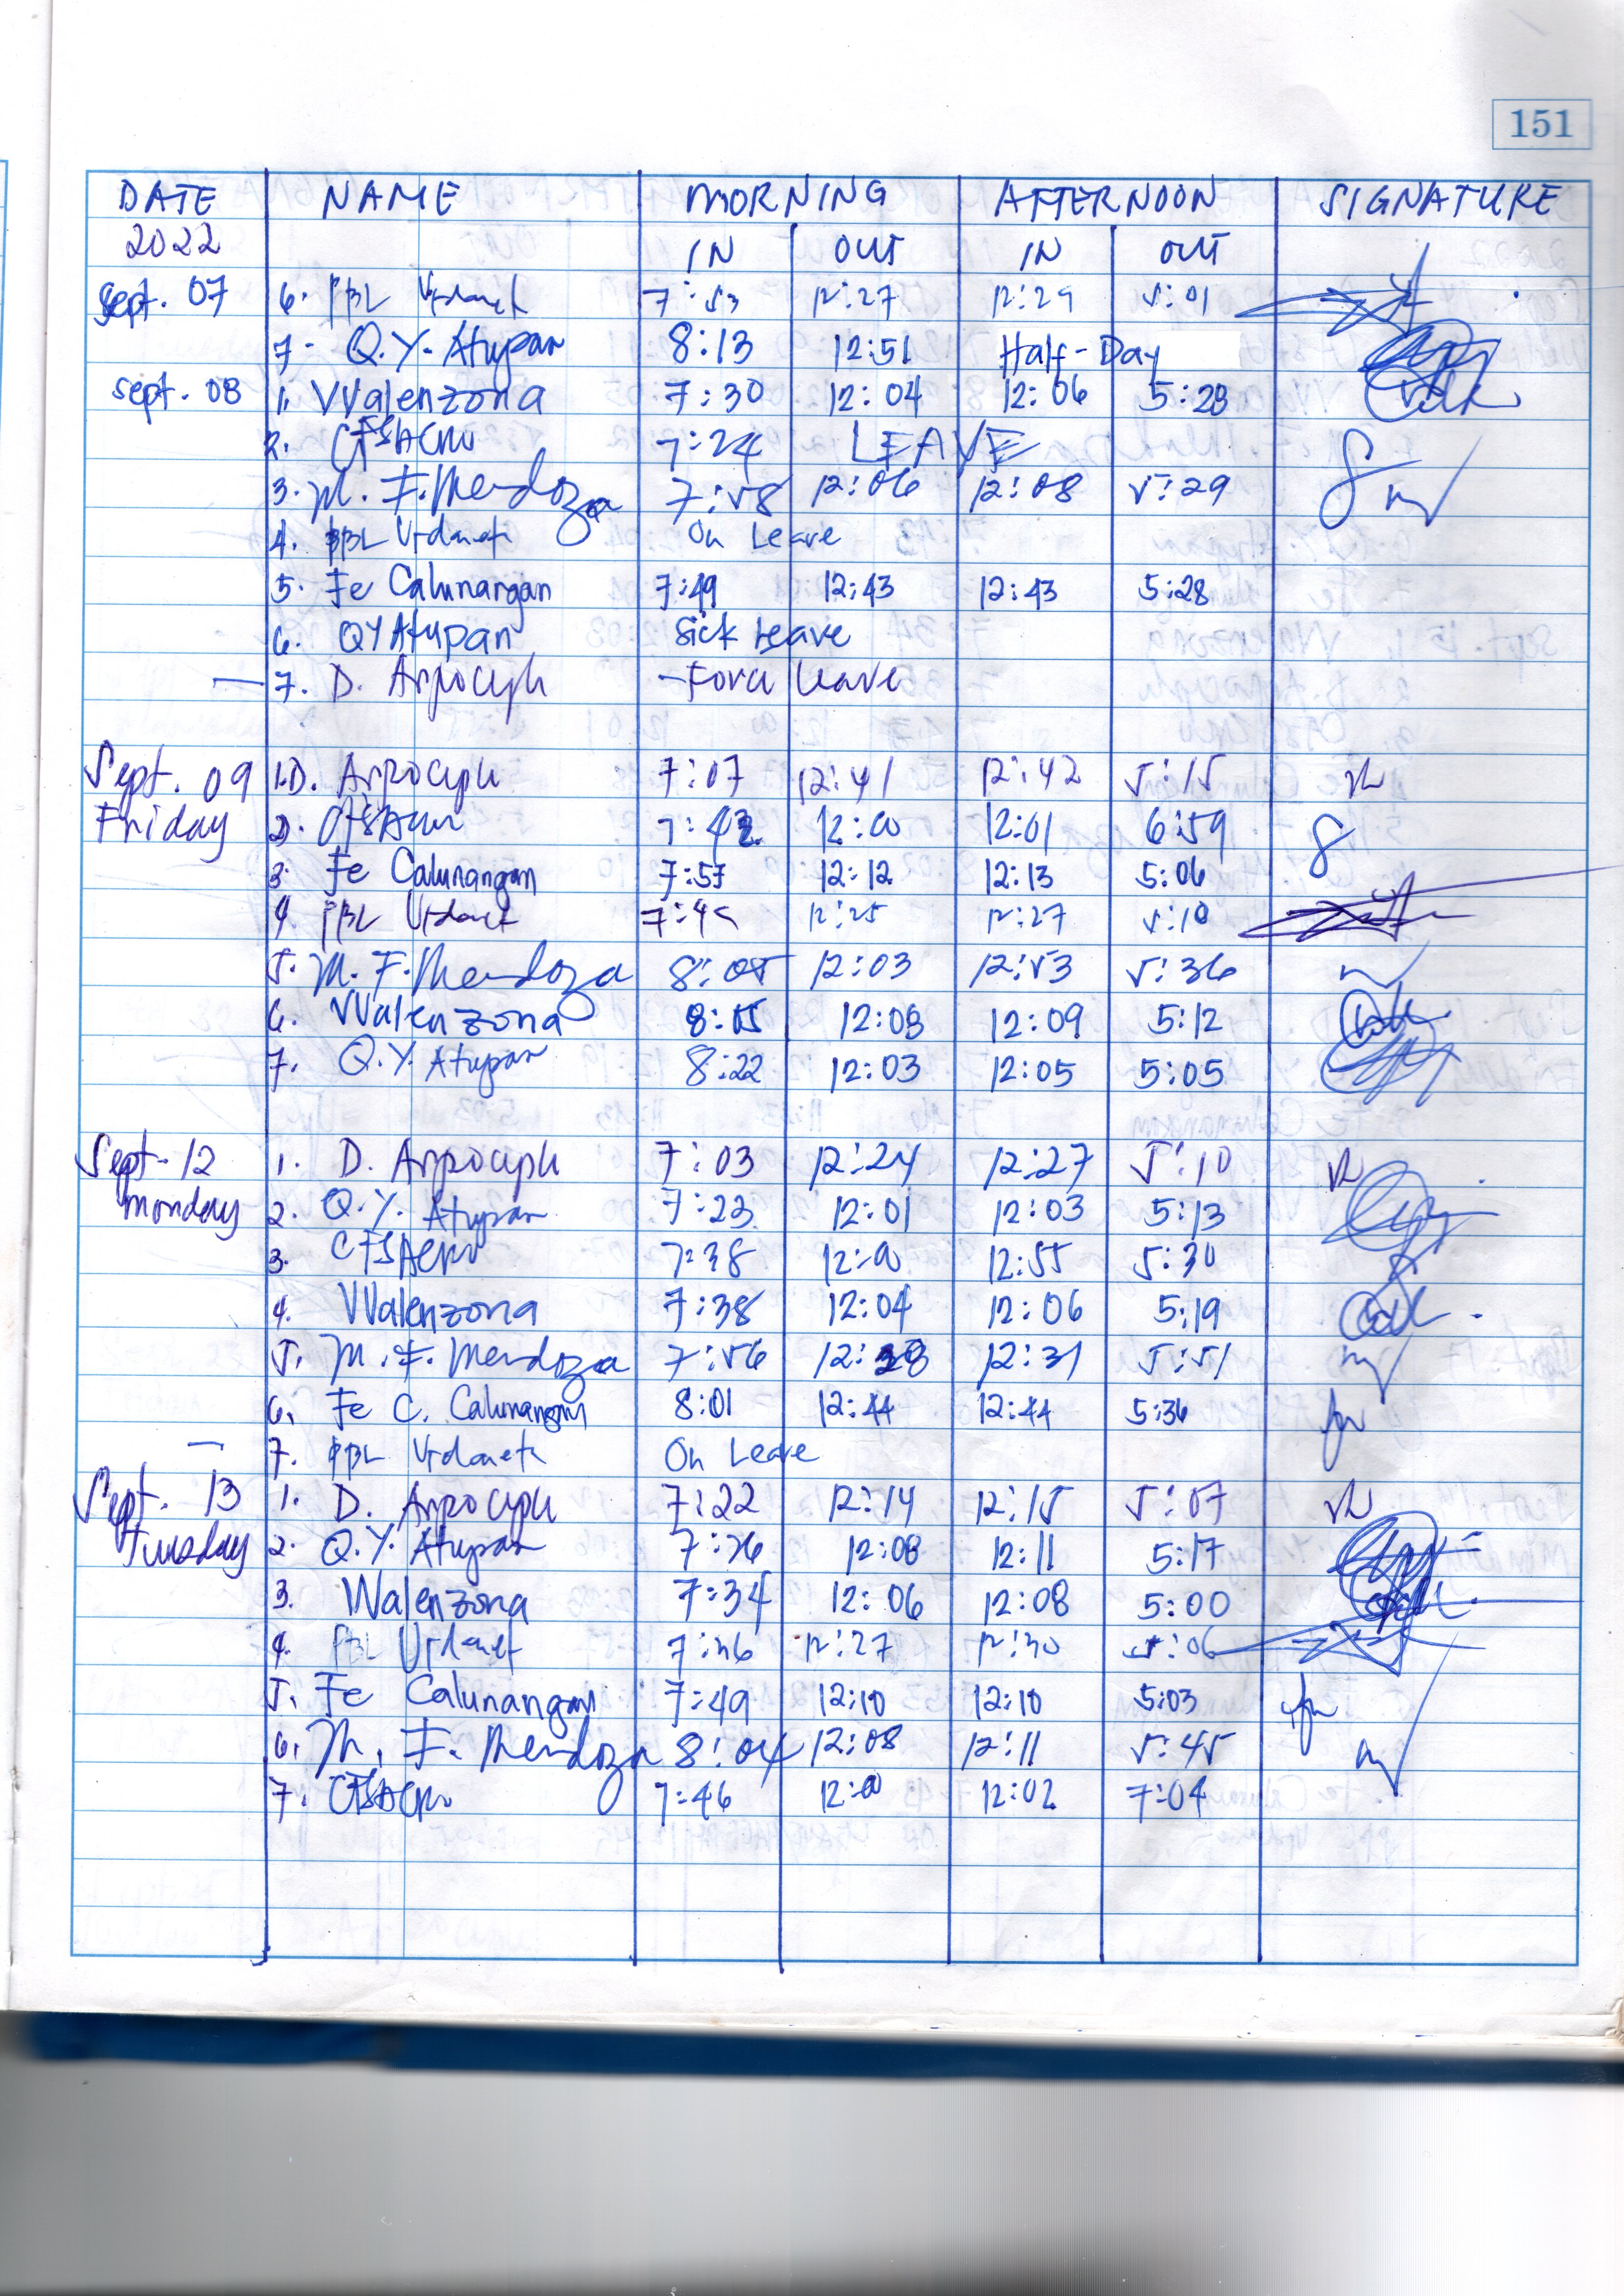 151
DATE NAME MORNING AFTERNOON SIGNATURE
2022 IN OUT IN OUT
Sept. 07 6. PBL 7:53 12:27 12:29 5:01
7- Q.Y. Atupan 8:13 12:51 Half-Day
Sept. 08 1. VValenzona 7:30 12:04 12:06 5:28
2. 7:24 LEAVE
3. M. F. Mendoza 7:58 12:06 12:08 5:29
4. PBL On Leave
5. Fe Calunangan 7:49 12:43 12:43 5:28
6. QY Atupan Sick Leave
7. D. Arpoceph - Force leave
Sept. 09 1. D. Arpoceph 7:07 12:41 12:42 5:15
Friday 2. 7:42 12:00 12:01 6:59
3. Fe Calunangan 7:57 12:12 12:13 5:06
4. PBL 7:45 12:25 12:27 5:10
5. M. F. Mendoza 8:05 12:03 12:53 5:36
6. VValenzona 8:05 12:08 12:09 5:12
7. Q.Y. Atupan 8:22 12:03 12:05 5:05
Sept-12 1. D. Arpoceph 7:03 12:24 12:27 5:10
Monday 2. Q.Y. Atupan 7:23 12:01 12:03 5:13
3. 7:38 12:00 12:55 5:30
4. VValenzona 7:38 12:04 12:06 5:19
5. M. F. Mendoza 7:56 12:28 12:31 5:51
6. Fe C. Calunangan 8:01 12:44 12:44 5:36
7. PBL On Leave
Sept. 13 1. D. Arpoceph 7:22 12:14 12:15 5:07
Tuesday 2. Q.Y. Atupan 7:26 12:08 12:11 5:17
3. VValenzona 7:34 12:06 12:08 5:00
4. PBL 7:36 12:27 12:30 5:06
5. Fe Calunangan 7:49 12:10 12:10 5:03
6. M. F. Mendoza 8:04 12:08 12:11 5:45
7. 7:46 12:00 12:02 7:04